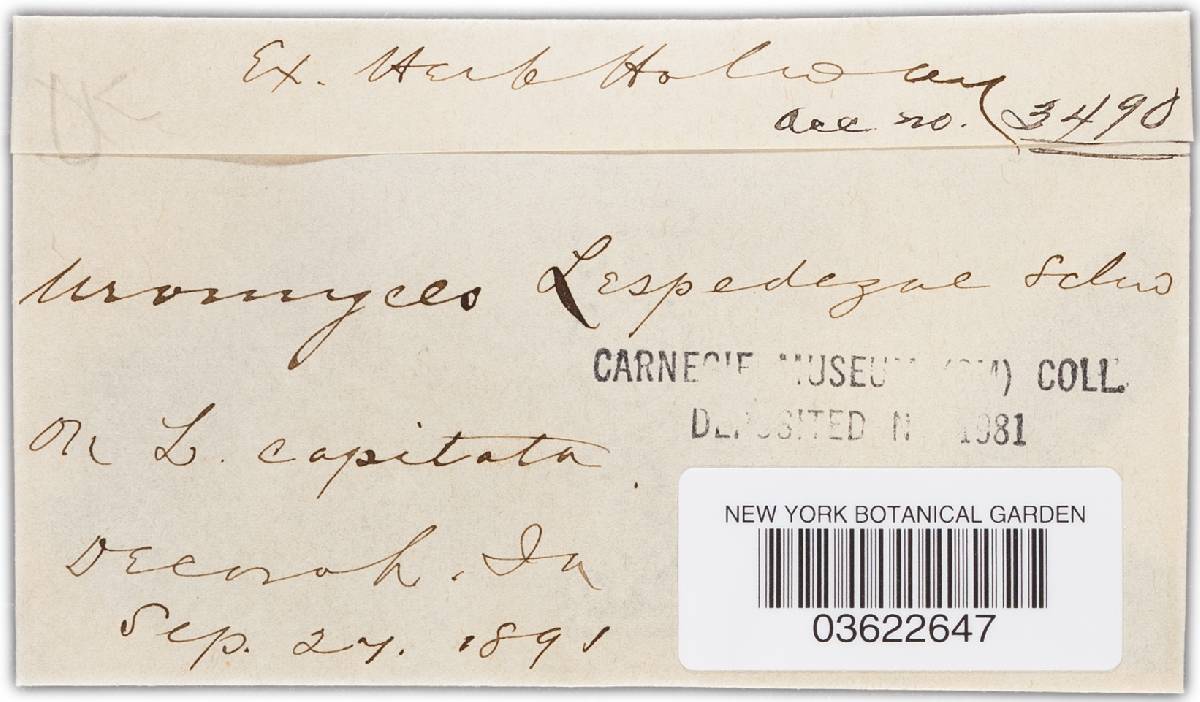 Ex. Herb Holway
Acc no. 3490
Uromyces Lespedezae Schw
On L. capitata
Decorah. Ia
Sep. 27. 1891
CARNEGIE MUSEUM (CM) COLL.
DEPOSITED IN 1981
NEW YORK BOTANICAL GARDEN
03622647